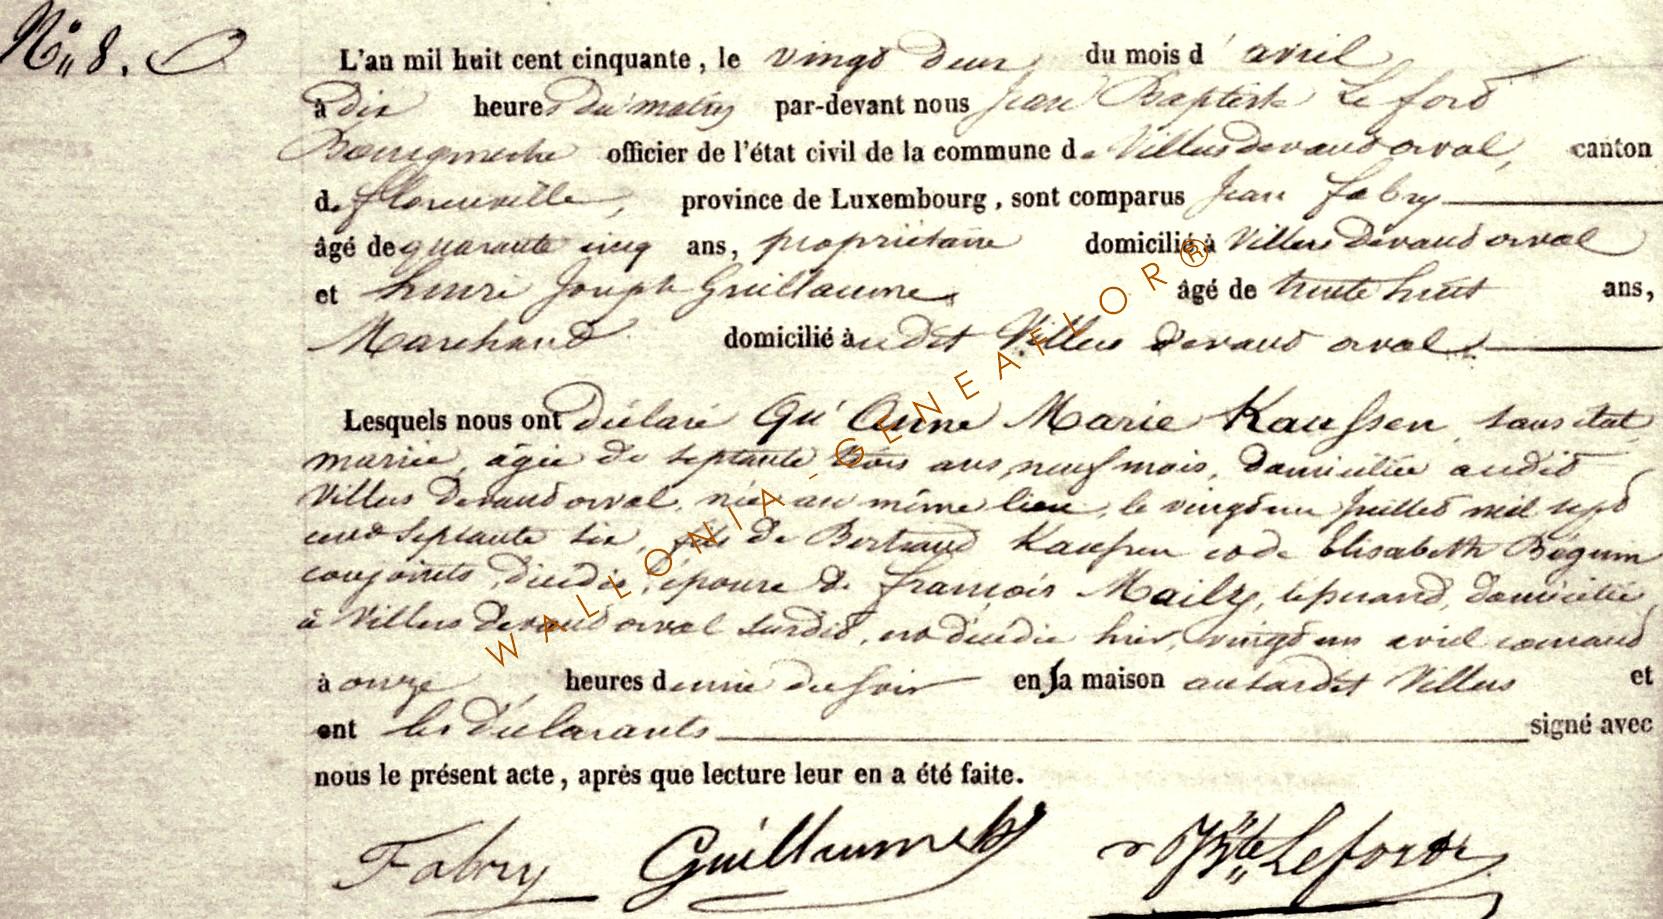 N° 8. D
L'an mil huit cent cinquante, le vingt deux du mois d'avril
à dix heures du matin par-devant nous Jean Baptiste Lefort
Bourgmestre officier de l'état civil de la commune de Villers devant orval, canton
de florenville, province de Luxembourg, sont comparus Jean Fabry
âgé de quarante cinq ans, propriétaire domicilié à Villers Devant orval
et henri Joseph Guillaume, âgé de trente huit ans,
Marchand domicilié audit Villers devant orval.
Lesquels nous ont déclaré Qu'Anne Marie Kaussen, sans état
mariée, âgée de septante trois ans, neuf mois, domiciliée audit
Villers devant orval, née au même lieu, le vingt un juillet mil sept
cent septante six, fille de Bertrand Kaussen et de Elisabeth Bégum
conjoints, décédés, épouse de françois Mailly, domicilié
à Villers devant orval susdit, est décédée hier, vingt un avril courant
à onze heures demie du soir en sa maison au susdit Villers et
ont les déclarants signé avec
nous le présent acte, après que lecture leur en a été faite.
Fabry Guillaume hj JBte Lefort
WALLONIA-GENEAFLOR®